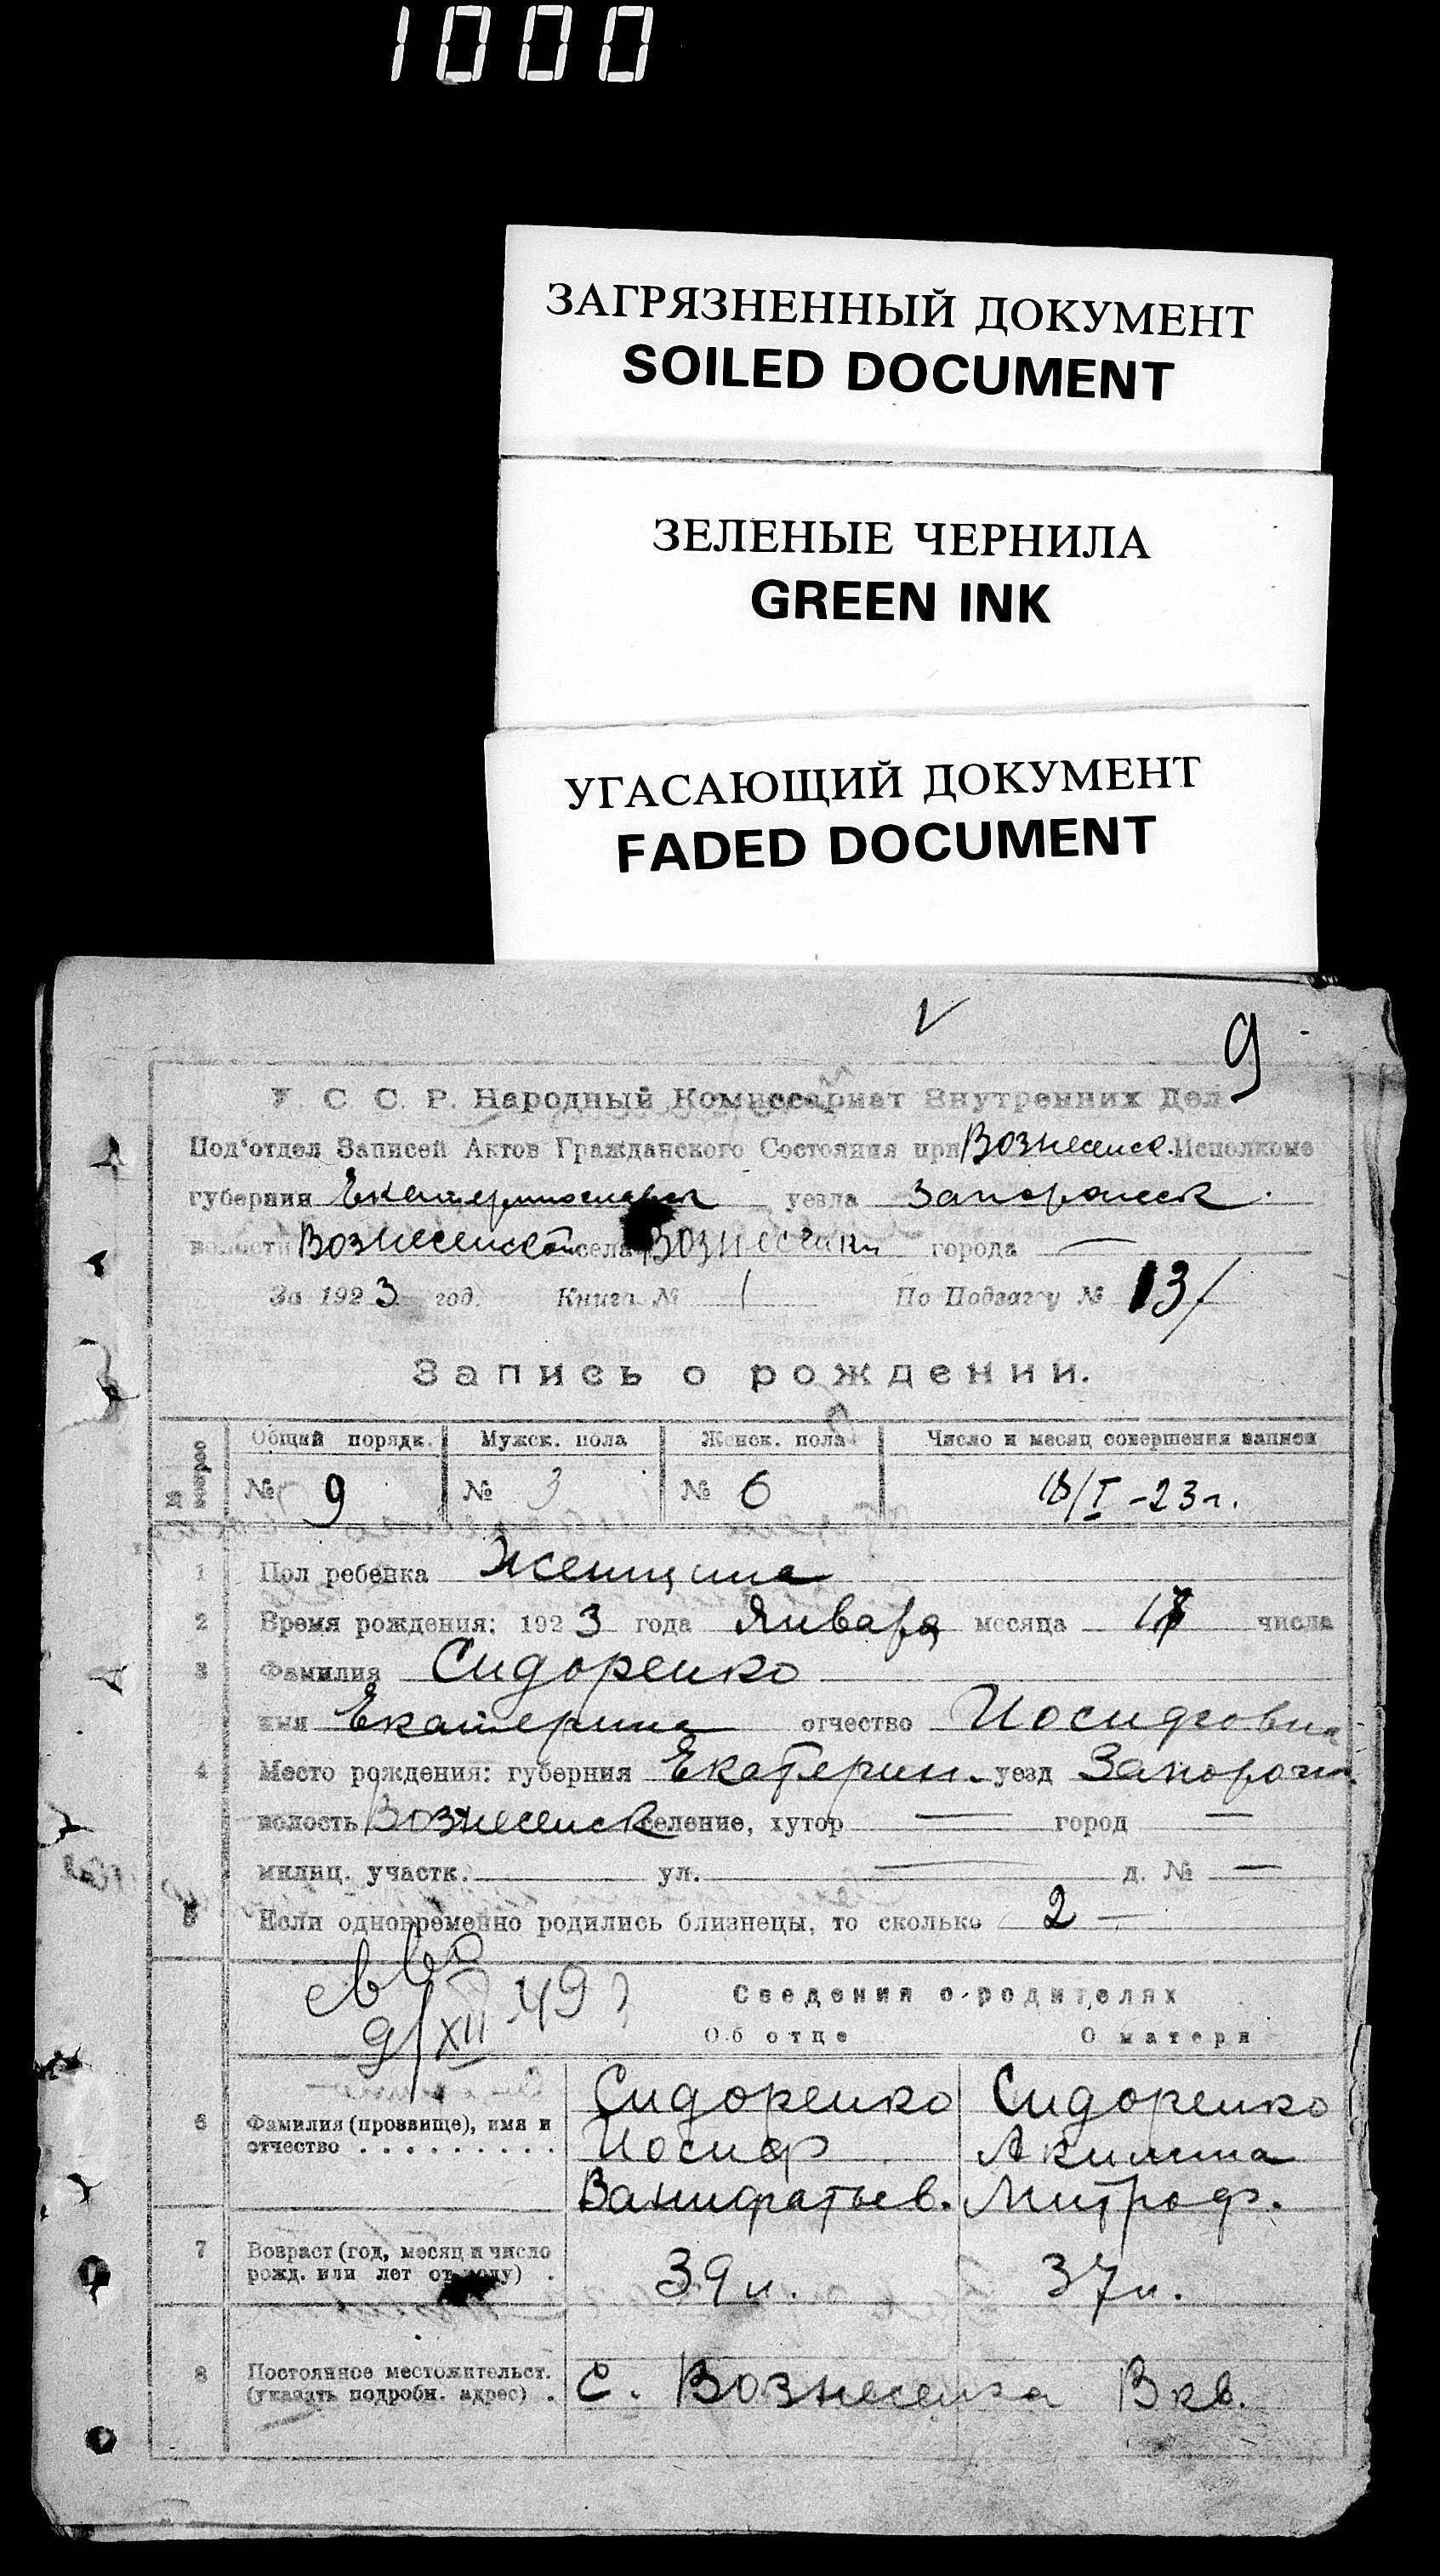 1000
ЗАГРЯЗНЕННЫЙ ДОКУМЕНТ
SOILED DOCUMENT
ЗЕЛЕНЫЕ ЧЕРНИЛА
GREEN INK
УГАСАЮЩИЙ ДОКУМЕНТ
FADED DOCUMENT
9
У. С. С. Р. Народный Комиссариат Внутренних Дел
Под'отдел Записей Актов Гражданского Состояния при Вознесенск. Исполкоме
губернии Екатеринославск уезда Запорожск.
волости Вознесенской села Вознесенки города —
За 1923 год. Книга № 1 По Подзагсу № 13/
Запись о рождении.
№ вопрос Общий порядк. Мужск. пола Женск. пола Число и месяц совершения записи
№ 9 № 3 № 6 18/I-23г.
1 Пол ребенка Женщина
2 Время рождения: 1923 года Января месяца числа
3 Фамилия Сидоренко
имя Екатерина отчество Иосифовна
4 Место рождения: губерния Екатерин. уезд Запорож.
волость Вознесенск селение, хутор — город —
милиц. участк. ул. — д. № —
5 Если одновременно родились близнецы, то сколько 2 —
9/XII 49
Сведения о родителях
Об отце О матери
6 Фамилия (прозвище), имя и отчество . . . . . . . . .
Сидоренко Сидоренко
Иосиф Акилина
Ванифатьев. Митроф.
7 Возраст (год, месяц и число рожд. или лет от роду) .
39 л. 37 л.
8 Постоянное местожительст. (указать подробн. адрес) .
С. Вознесенка В кв.